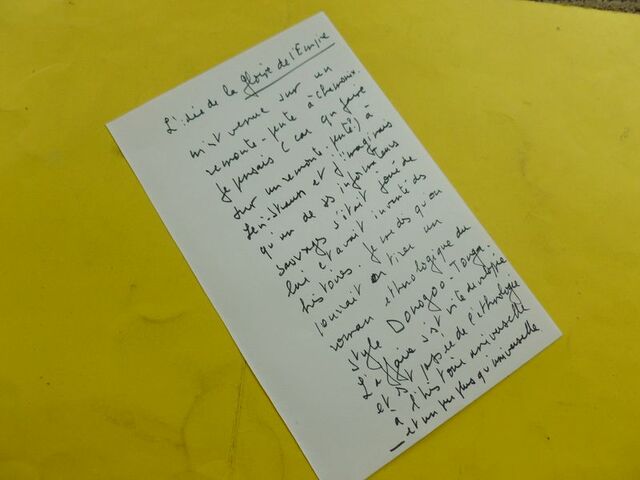 L'idée de la gloire de l'Empire
m'est venue sur un
remonte-pente à Chamonix.
Je pensais (car que faire
sur un remonte-pente?) à
Lévi-Strauss et j'imaginais
qu'un de ses informateurs
sauvages s'était joué de
lui et avait inventé des
histoires. Je me dis qu'on
pouvait en tirer un
roman ethnologique du
style Donogoo-Tonga.
L'affaire s'est vite développée
et est passée de l'ethnologie
à l'histoire universelle
— et un peu plus qu'universelle